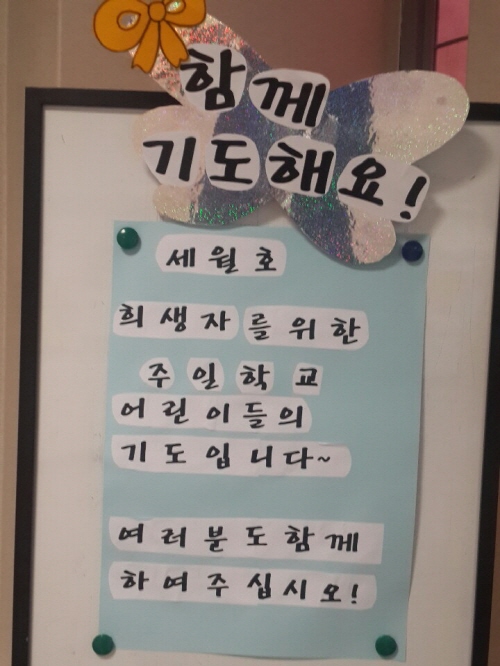 함께
기도해요!
세월호
희생자를 위한
주일학교
어린이들의
기도입니다~
여러분도 함께
하여주십시오!